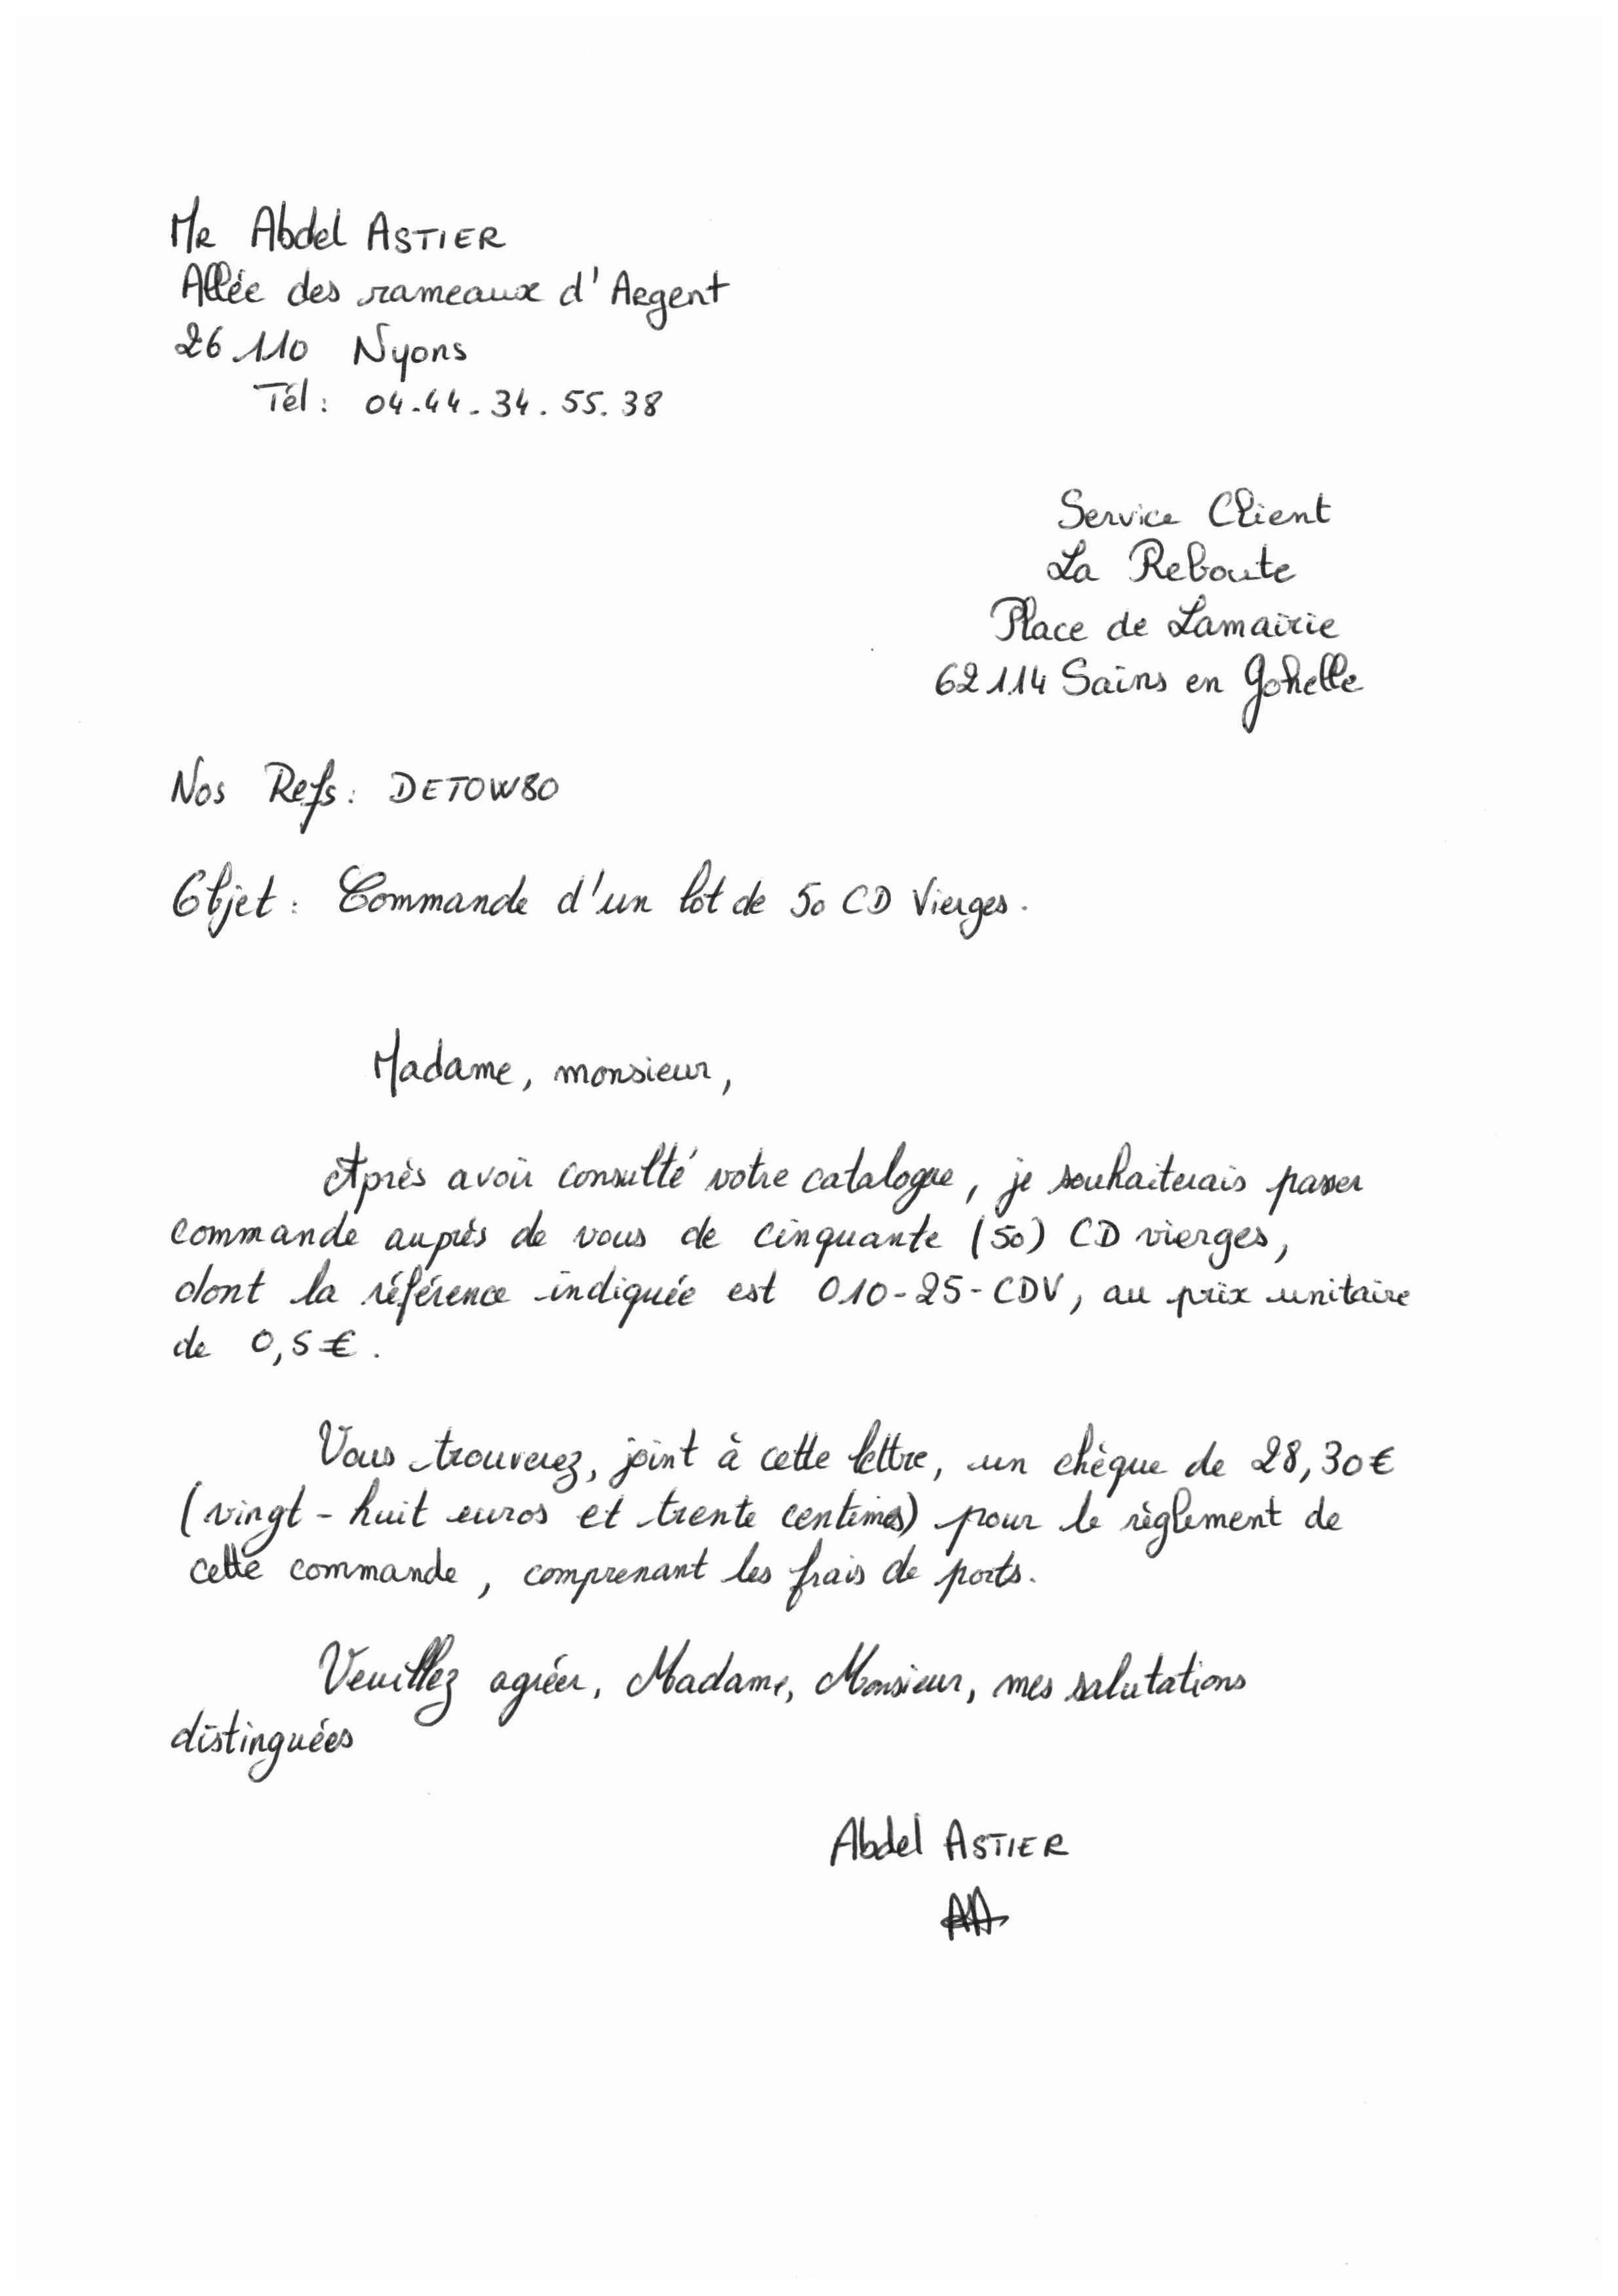 Mr Abdel ASTIER
Allée des rameaux d'Argent
26110 Nyons
Tél : 04.44.34.55.38
Service Client
La Reboute
Place de Lamairie
62114 Sains en Gohelle
Nos Refs : DETOW80
Objet : Commande d'un lot de 50 CD Vierges.
Madame, monsieur,
Après avoir consulté votre catalogue, je souhaiterais passer
commande auprès de vous de cinquante (50) CD vierges,
dont la référence indiquée est 010-25-CDV, au prix unitaire
de 0,5€.
Vous trouverez, joint à cette lettre, un chèque de 28,30€
(vingt-huit euros et trente centimes) pour le règlement de
cette commande, comprenant les frais de ports.
Veuillez agréer, Madame, Monsieur, mes salutations
distinguées
Abdel ASTIER
AA